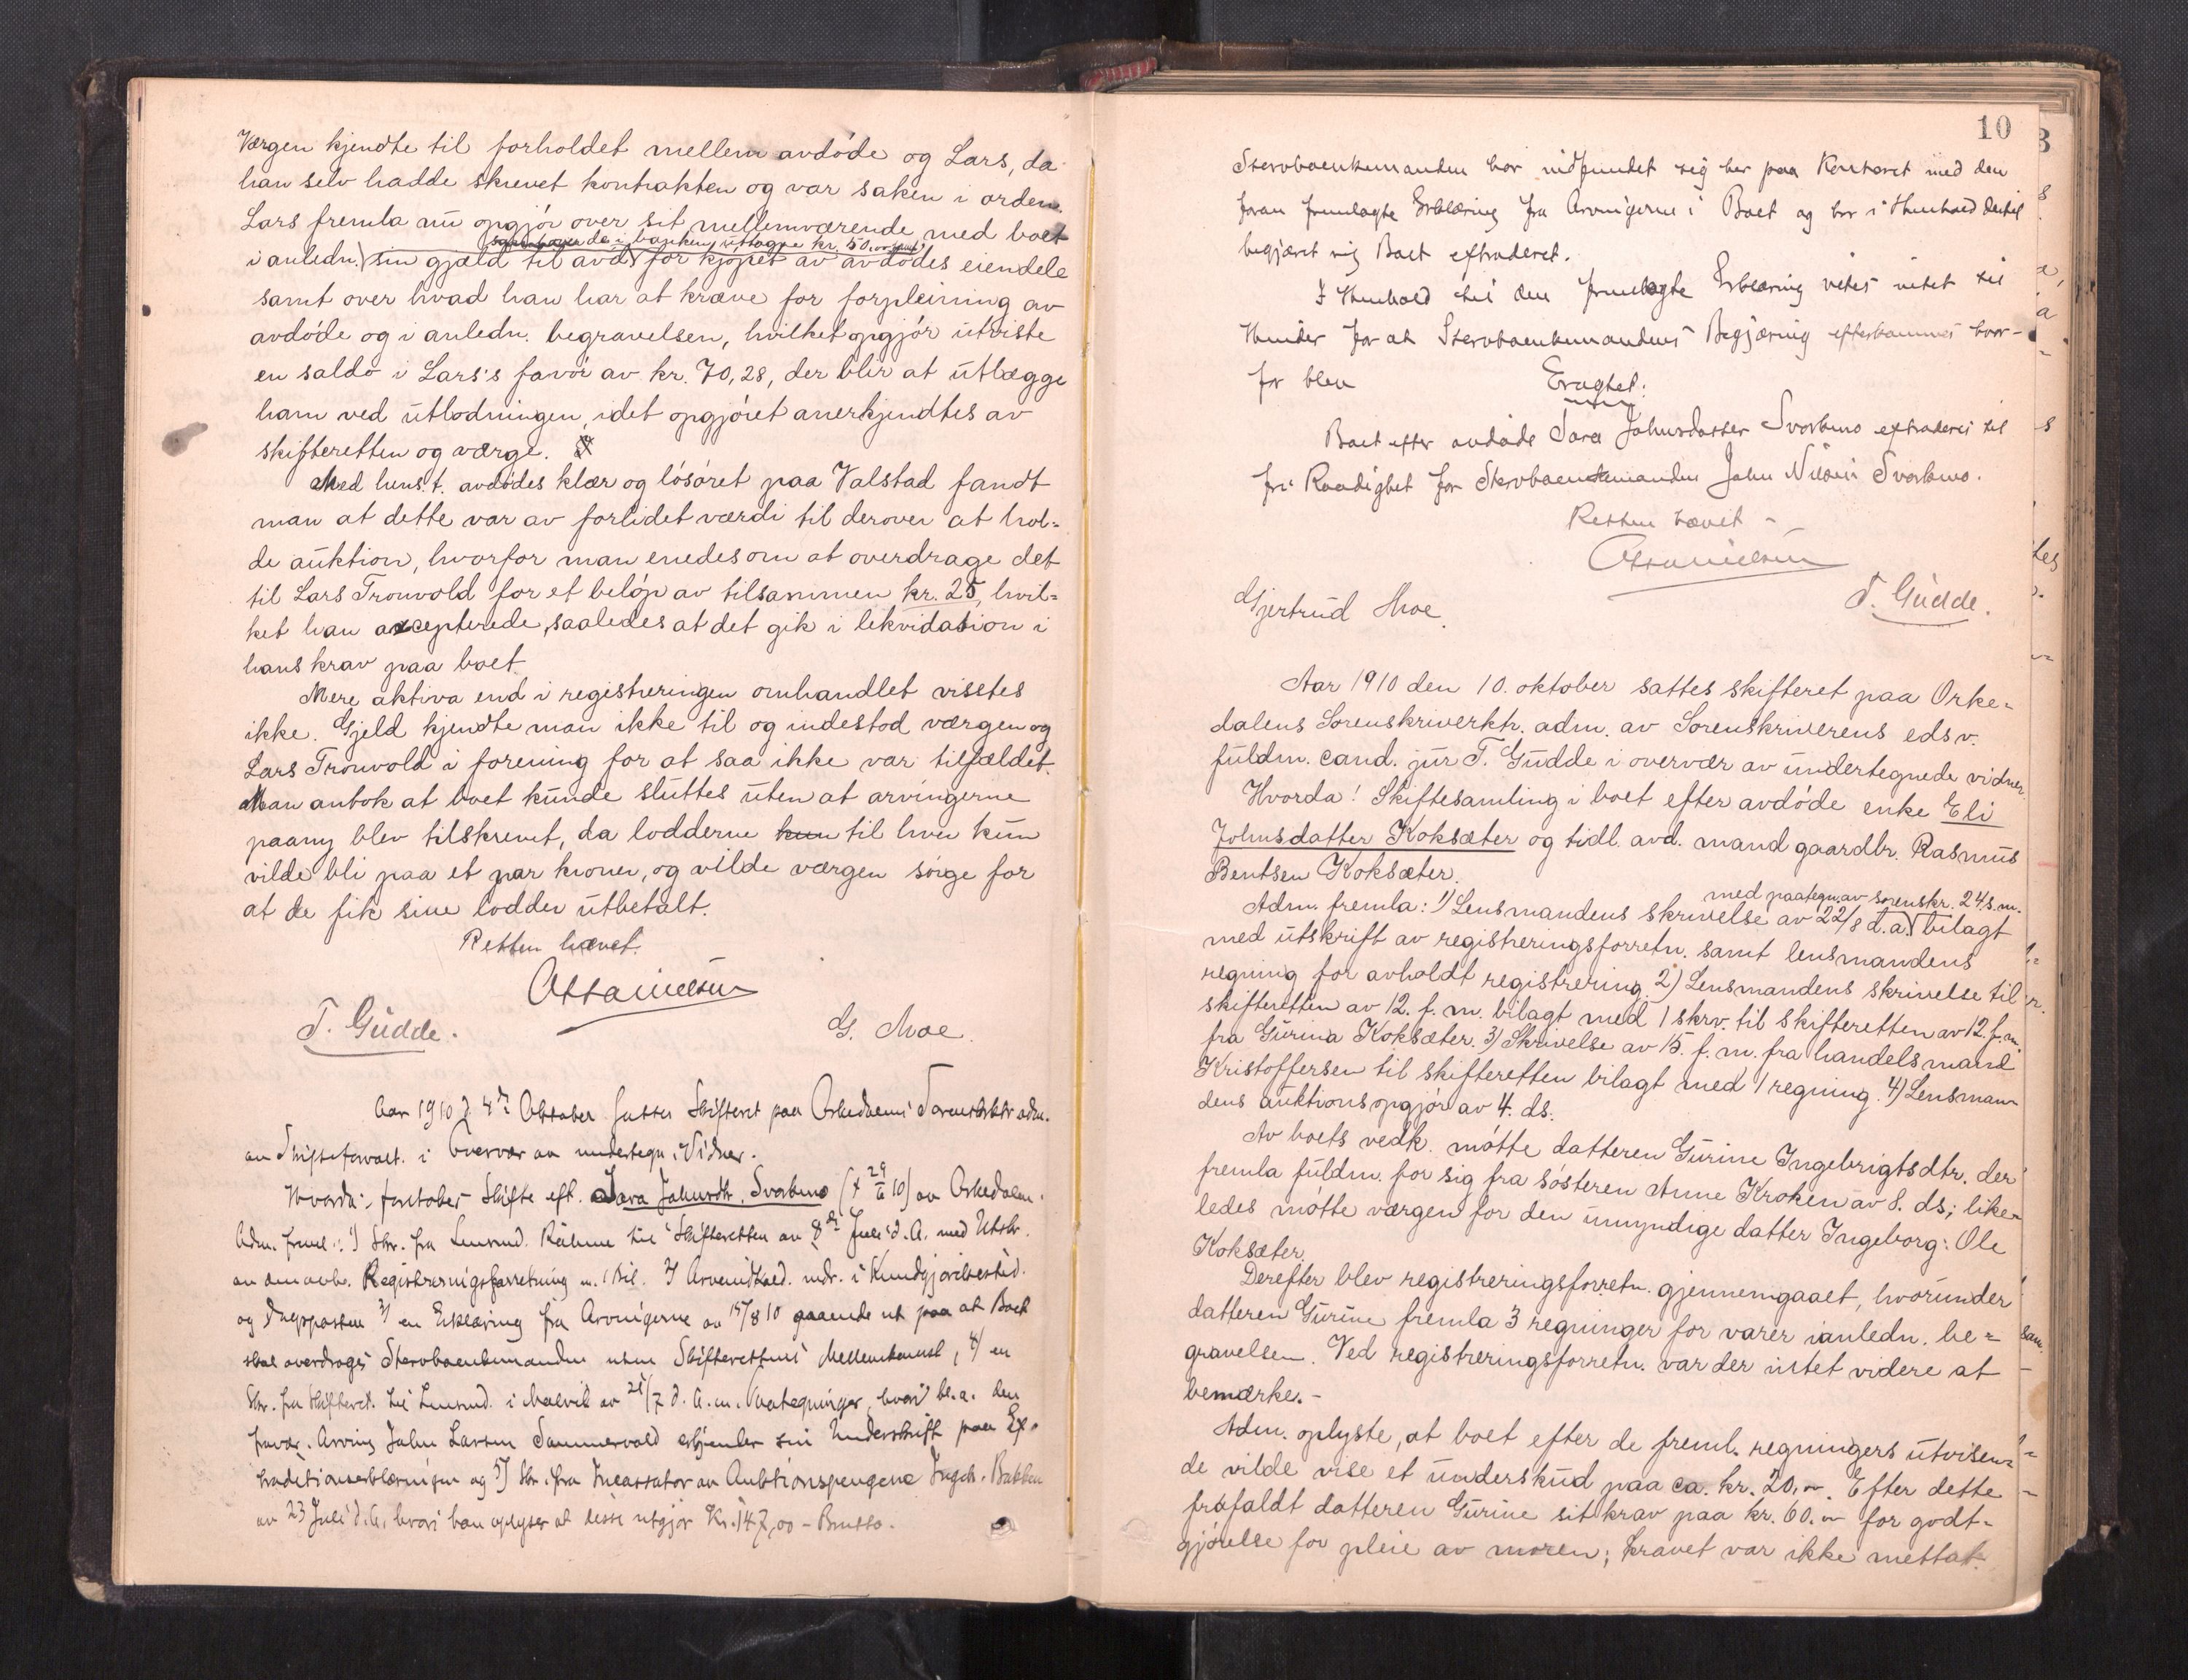 Værgen kjendte til forholdet mellem avdøde og Lars, da
han selv hadde skrevet kontrakten og var saken i orden.
Lars fremla nu opgjør over sit mellemværende med boet
de i banken uttagne kr. 50,00
i anledn. sin gjæld til avd. for kjøpet av avdødes eiendele
samt over hvad han har at kræve for forpleining av
avdøde og i anledn. begravelsen, hvilket opgjør utviste
en saldo i Lars's favør av kr. 70,28, der blir at utlægge
ham ved utlodningen, idet opgjøret anerkjendtes av
skifteretten og værge.
Med hens. t. avdødes klær og løsøret paa Valstad fandt
man at dette var av forlidet værdi til derover at hol-
de auktion, hvorfor man enedes om at overdrage det
til Lars Tronvold for et beløp av tilsammen kr. 25, hvil-
ket han accepterede, saaledes at det gik i lekvidation i
hans krav paa boet.
Mere aktiva end i registreringen omhandlet visstes
ikke. Gjeld kjendte man ikke til og indestod værgen og
Lars Tronvold i forening for at saa ikke var tilfældet.
Man antok at boet kunde sluttes uten at arvingerne
paany blev tilskrevet, da lodderne kun til hver kun
vilde bli paa et par kroner, og vilde værgen sørge for
at de fik sine lodder utbetalt.
Retten hævet.
T. Gudde. G. Moe.
Aar 1910 d. 4de Oktober sattes Skifteret paa Orkedalens Sorenskrktr. adm.
av Skifteforvalt. i Overvær av undertegn. Vidner.
Hvorda: foretoges Skifte eft. Sara Johnsdtr. Svorkmo († 29/6 10) av Orkedalen.
Adm. freml.: 1) Skr. fra Lensmd. til Skifteretten av 8de Juli d. A. med Utskr.
av den avh. Registreringsforretning m. 1 Bil. indr. i Kundgjørelsestid.
og Dagsposten 3) en Erklæring fra Arvingerne av 15/8 10 gaaende ut paa at Boet
skal overdrages Stervboenkemanden uten Skifterettens Mellemkomst, 4) en
Skr. fra Skifteret. til Lensmd. i Malvik av 28/7 d. A. m. Paategninger, hvori bl. a. den
fravær. Arving John Larsen erkjender sin Underskrift paa Ex-
traditionserklæringen og 5) Skr. fra Incassator av Auktionspengene Ingebr. Bakken
av 23 Juli d. A. hvori han oplyser at disse utgjør Kr. 147,00 – Brutto.
10
Stervboenkemanden har indfundet sig her paa Kontoret med den
foran fremlagte Erklæring fra Arvingerne i Boet og har i Henhold dertil
begjæret sig Boet extraderet.
I Henhold til den fremlagte Erklæring vites intet til
Hinder for at Stervboenkemandens Begjæring efterkommes hvor-
for blev Eragtet:
Boet efter avdøde Sara Johnsdatter Svorkmo extraderes til
fri Raadighet for Stervboenkemanden John Nilsen Svorkmo.
Retten hævet –
Gjertrud Moe. T. Gudde.
Aar 1910 den 10. oktober sattes skifteret paa Orke-
dalens Sorenskriverktr. adm. av Sorenskriverens edsv.
fuldm. cand. jur T. Gudde i overvær av undertegnede vidner.
Hvorda! Skiftesamling i boet efter avdøde enke Eli
Johnsdatter Koksæter og tidl. avd. mand gaardbr. Rasmus
Bentsen Koksæter.
med paategn. av sorenskr. 24 s. m.
Adm. fremla: 1) Lensmandens skrivelse av 22/8 d. a. bilagt
med utskrift av registreringsforretn. samt lensmandens
regning for avholdt registrering. 2) Lensmandens skrivelse til
skifteretten av 12. f. m. bilagt med 1 skrv. til skifteretten av 12. f. m.
fra Gurina Koksæter. 3) Skrivelse av 15. f. m. fra handelsmand
Kristoffersen til skifteretten bilagt med 1 regning. 4) Lensman-
dens auktionsopgjør av 4. ds.
Av boets vedk. møtte datteren Gurine Ingebrigtsdtr. der
fremla fuldm. for sig fra søsteren Anne Kroken av 8. ds; like-
ledes møtte værgen for den umyndige datter Ingeborg: Ole
Koksæter.
Derefter blev registreringsforretn. gjennemgaaet, hvorunder
datteren Gurine fremla 3 regninger for varer ianledn. be-
gravelsen. Ved registreringsforretn. var der intet videre at
bemærke. –
Adm. oplyste, at boet efter de freml. regningers utvisen-
de vilde vise et underskud paa ca. kr. 20,00. Efter dette
frafaldt datteren Gurine sit krav paa kr. 60.00 for godt-
gjørelse for pleie av moren; kravet var ikke mottat